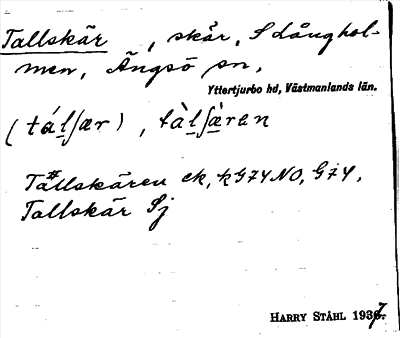 Tallskär, skär, S Långhol-
men, Ängsö sn,
Yttertjurbo hd, Västmanlands län.
(tálʃær), tàlʃæ̀ren
Tallskären ek, kG74NO, G74,
Tallskär Sj
HARRY STÅHL 1937.